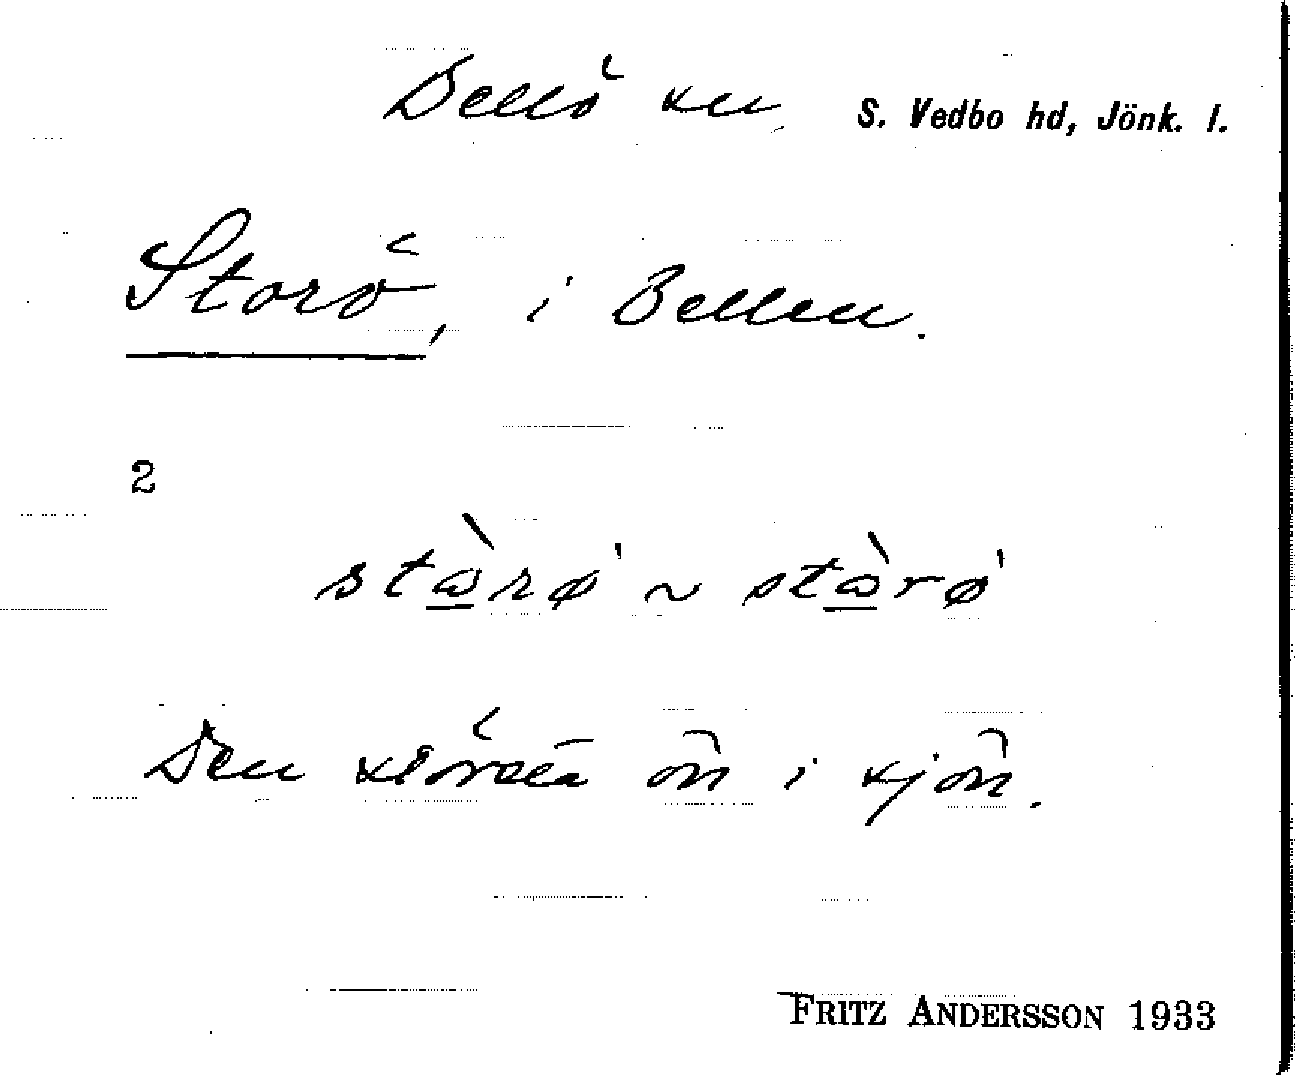 Bellö sn, S. Vedbo hd, Jönk. l.
Storö, i Bellen.
2
stὼrø' ~ stὼrø'
Den största ön i sjön.
FRITZ ANDERSSON 1933